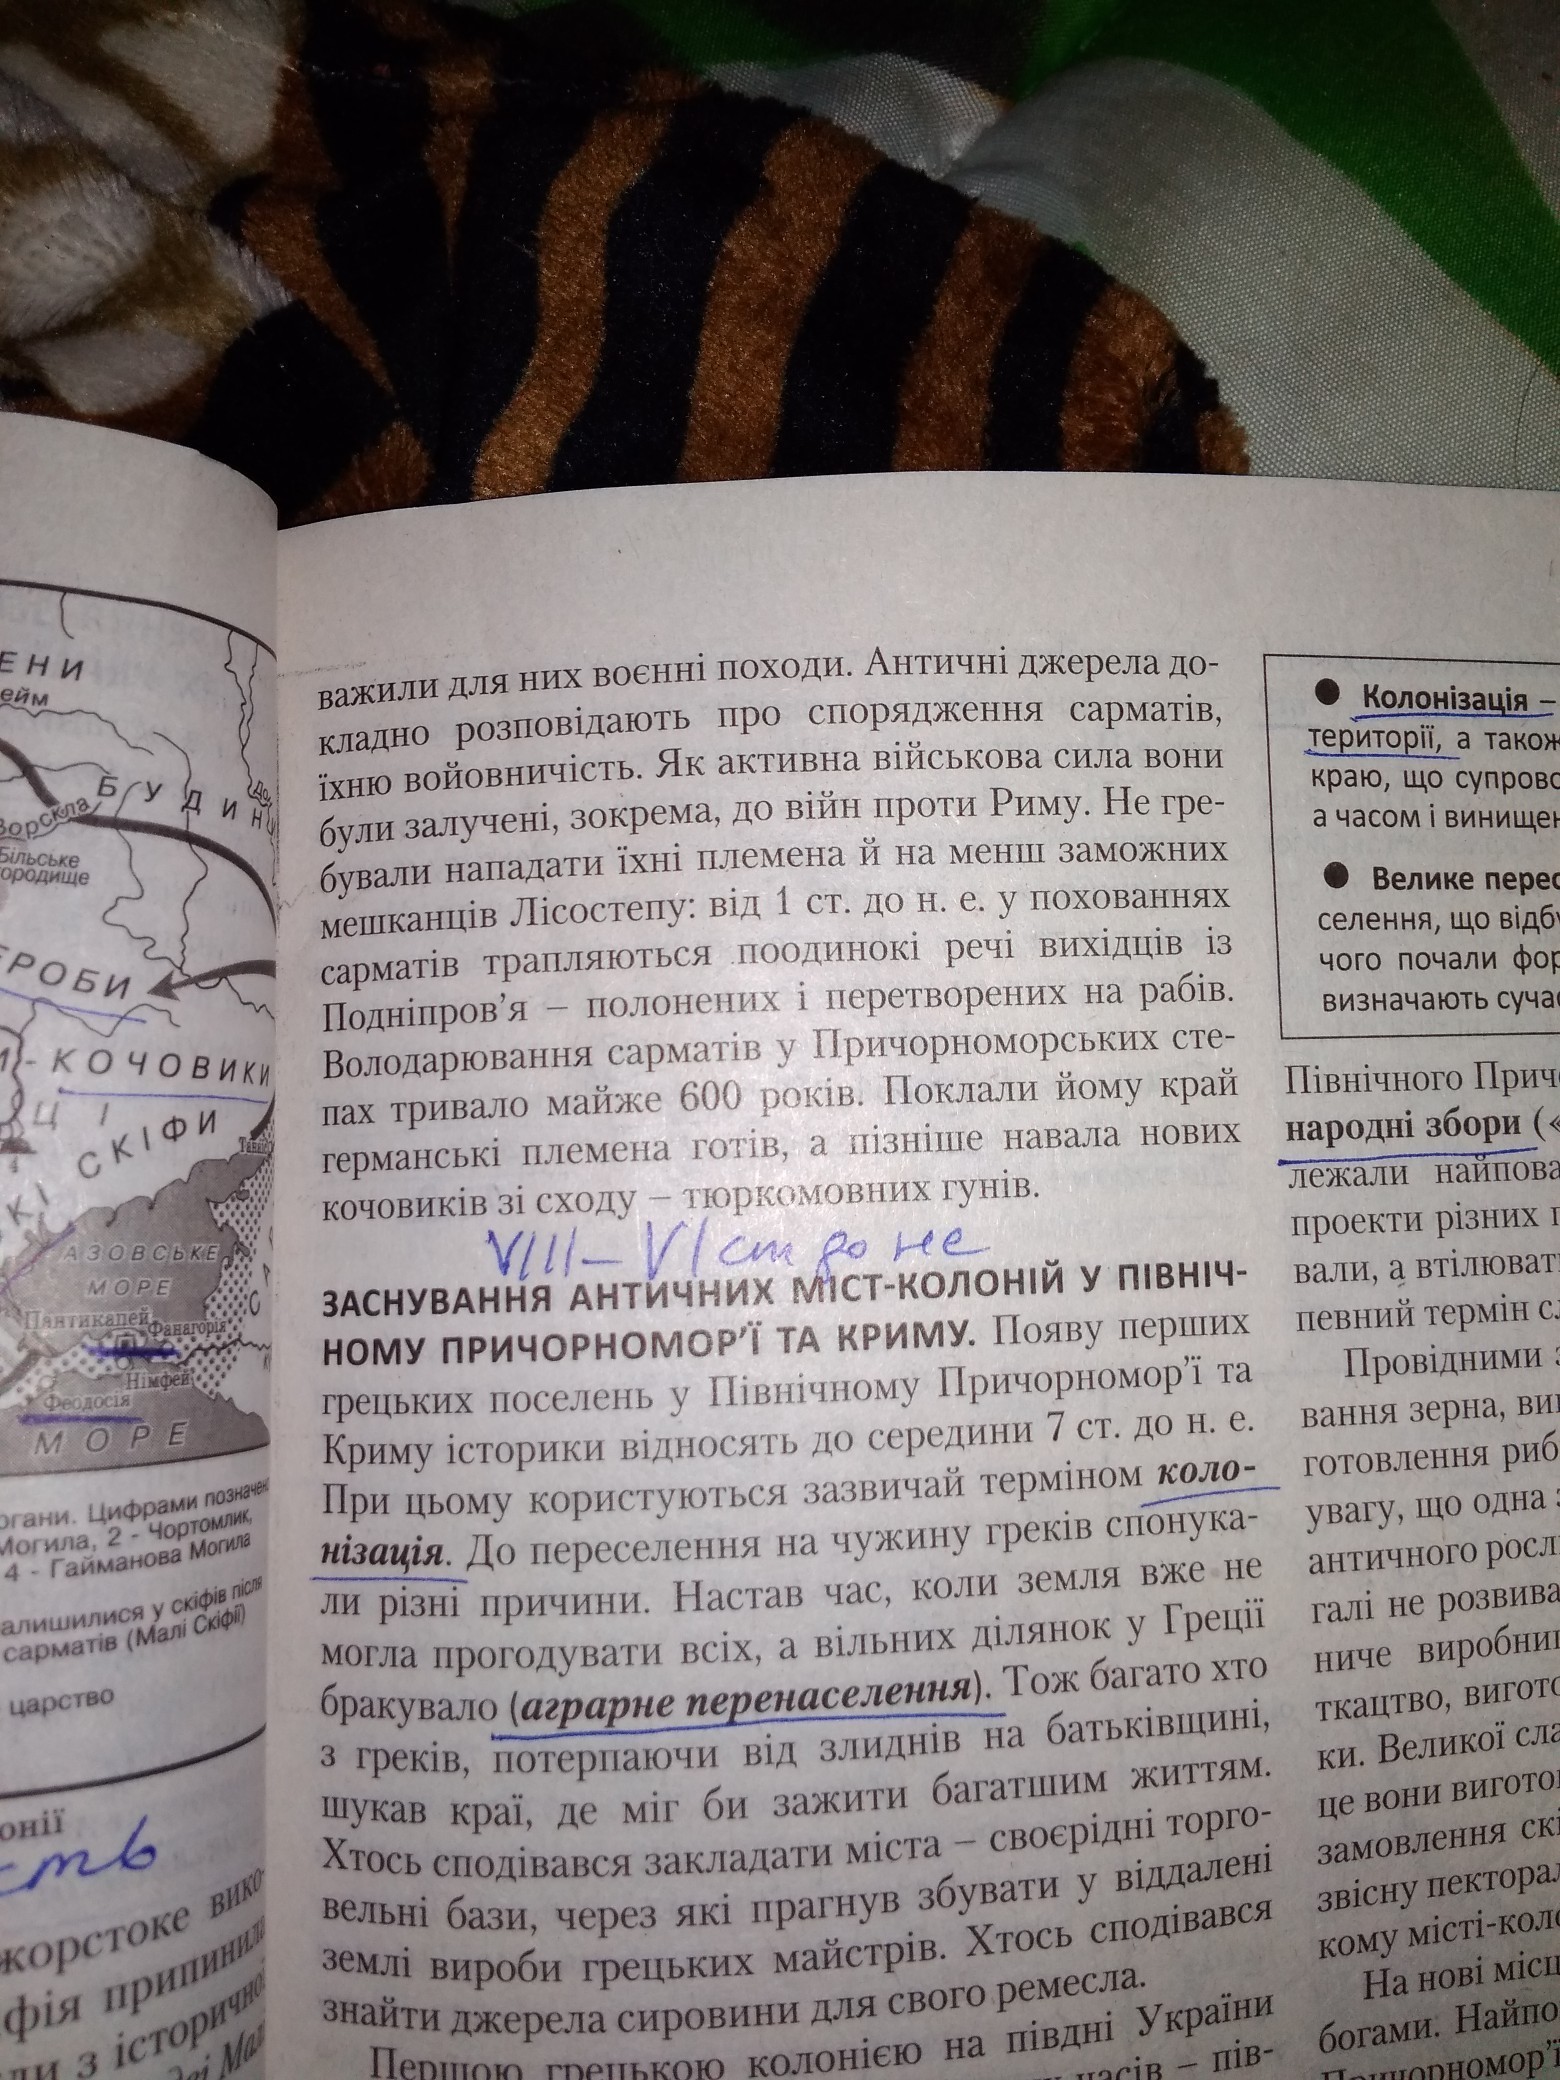 ЕНИ
ейм
БУДИНИ
Ворскла
Більське
городище
ЕРОБИ
И-КОЧОВИКИ
ЦІ
КІ СКІФИ
АЗОВСЬКЕ
МОРЕ
Пантикапей
Фанагорія
Німфей
Феодосія
МОРЕ
ргани. Цифрами позначен
Могила, 2 - Чортомлик,
4 - Гайманова Могила
алишилися у скіфів після
сарматів (Малі Скіфії)
царство
онії
сть
жорстоке вико-
фія припинила
ди з історично
важили для них воєнні походи. Античні джерела до-
кладно розповідають про спорядження сарматів,
їхню войовничість. Як активна військова сила вони
були залучені, зокрема, до війн проти Риму. Не гре-
бували нападати їхні племена й на менш заможних
мешканців Лісостепу: від 1 ст. до н. е. у похованнях
сарматів трапляються поодинокі речі вихідців із
Подніпров’я – полонених і перетворених на рабів.
Володарювання сарматів у Причорноморських сте-
пах тривало майже 600 років. Поклали йому край
германські племена готів, а пізніше навала нових
кочовиків зі сходу – тюркомовних гунів.
VIII – VI ст до не
ЗАСНУВАННЯ АНТИЧНИХ МІСТ-КОЛОНІЙ У ПІВНІЧ-
НОМУ ПРИЧОРНОМОР’Ї ТА КРИМУ. Появу перших
грецьких поселень у Північному Причорномор’ї та
Криму історики відносять до середини 7 ст. до н. е.
При цьому користуються зазвичай терміном коло-
нізація. До переселення на чужину греків спонука-
ли різні причини. Настав час, коли земля вже не
могла прогодувати всіх, а вільних ділянок у Греції
бракувало (аграрне перенаселення). Тож багато хто
з греків, потерпаючи від злиднів на батьківщині,
шукав краї, де міг би зажити багатшим життям.
Хтось сподівався закладати міста – своєрідні торго-
вельні бази, через які прагнув збувати у віддалені
землі вироби грецьких майстрів. Хтось сподівався
знайти джерела сировини для свого ремесла.
Першою грецькою колонією на півдні України
часів – пів-
● Колонізація –
території, а також
краю, що супрово
а часом і винищен
● Велике перес
селення, що відбу
чого почали фор
визначають суча
Північного Прич
народні збори («
лежали найпова
проекти різних
вали, а втілюват
певний термін сл
Провідними з
вання зерна, ви
готовлення риб
увагу, що одна з
античного росл
галі не розвива
ниче виробни
ткацтво, вигото
ки. Великої сла
це вони вигото
замовлення скі
звісну пектора
кому місті-коло
На нові місц
богами. Найпо
Причорномор’ї